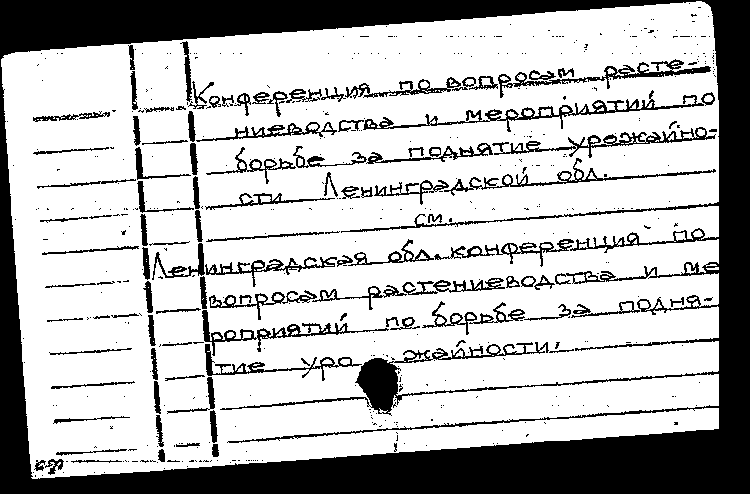 Конференция по вопросам расте-
ниеводства и мероприятий по
борьбе за поднятие урожайно-
сти Ленинградской обл.
см.
Ленинградская обл. конференция по
вопросам растениеводства и ме
роприятий по борьбе за подня-
тие уро жайности.